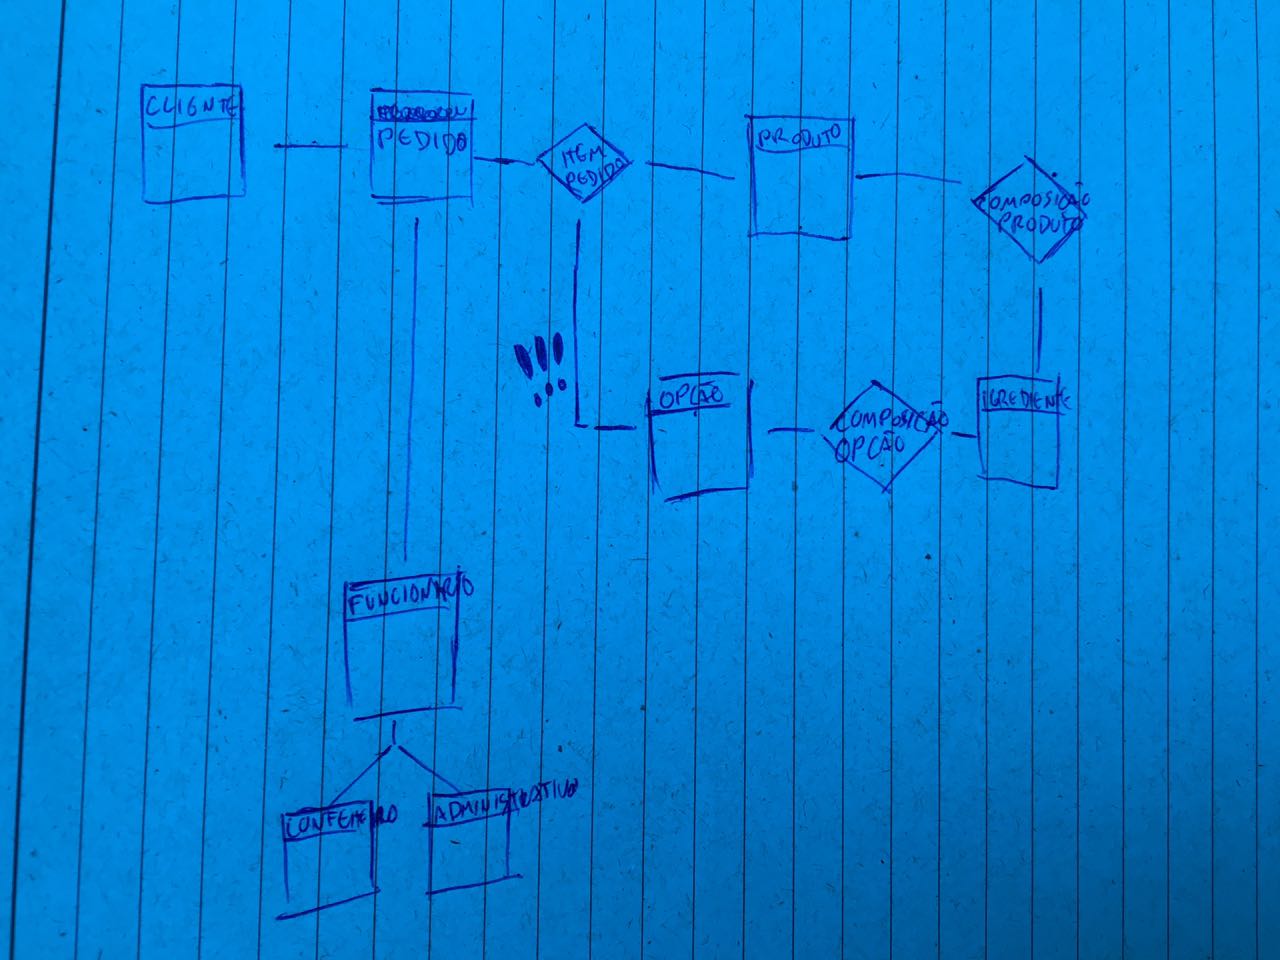 CLIENTE
PEDIDO
ITEM
PEDIDO
PRODUTO
COMPOSIÇÃO
PRODUTO
!!!
OPÇÃO
COMPOSIÇÃO
OPÇÃO
IGREDIENTE
FUNCIONÁRIO
CONFEITEIRO
ADMINISTRATIVO